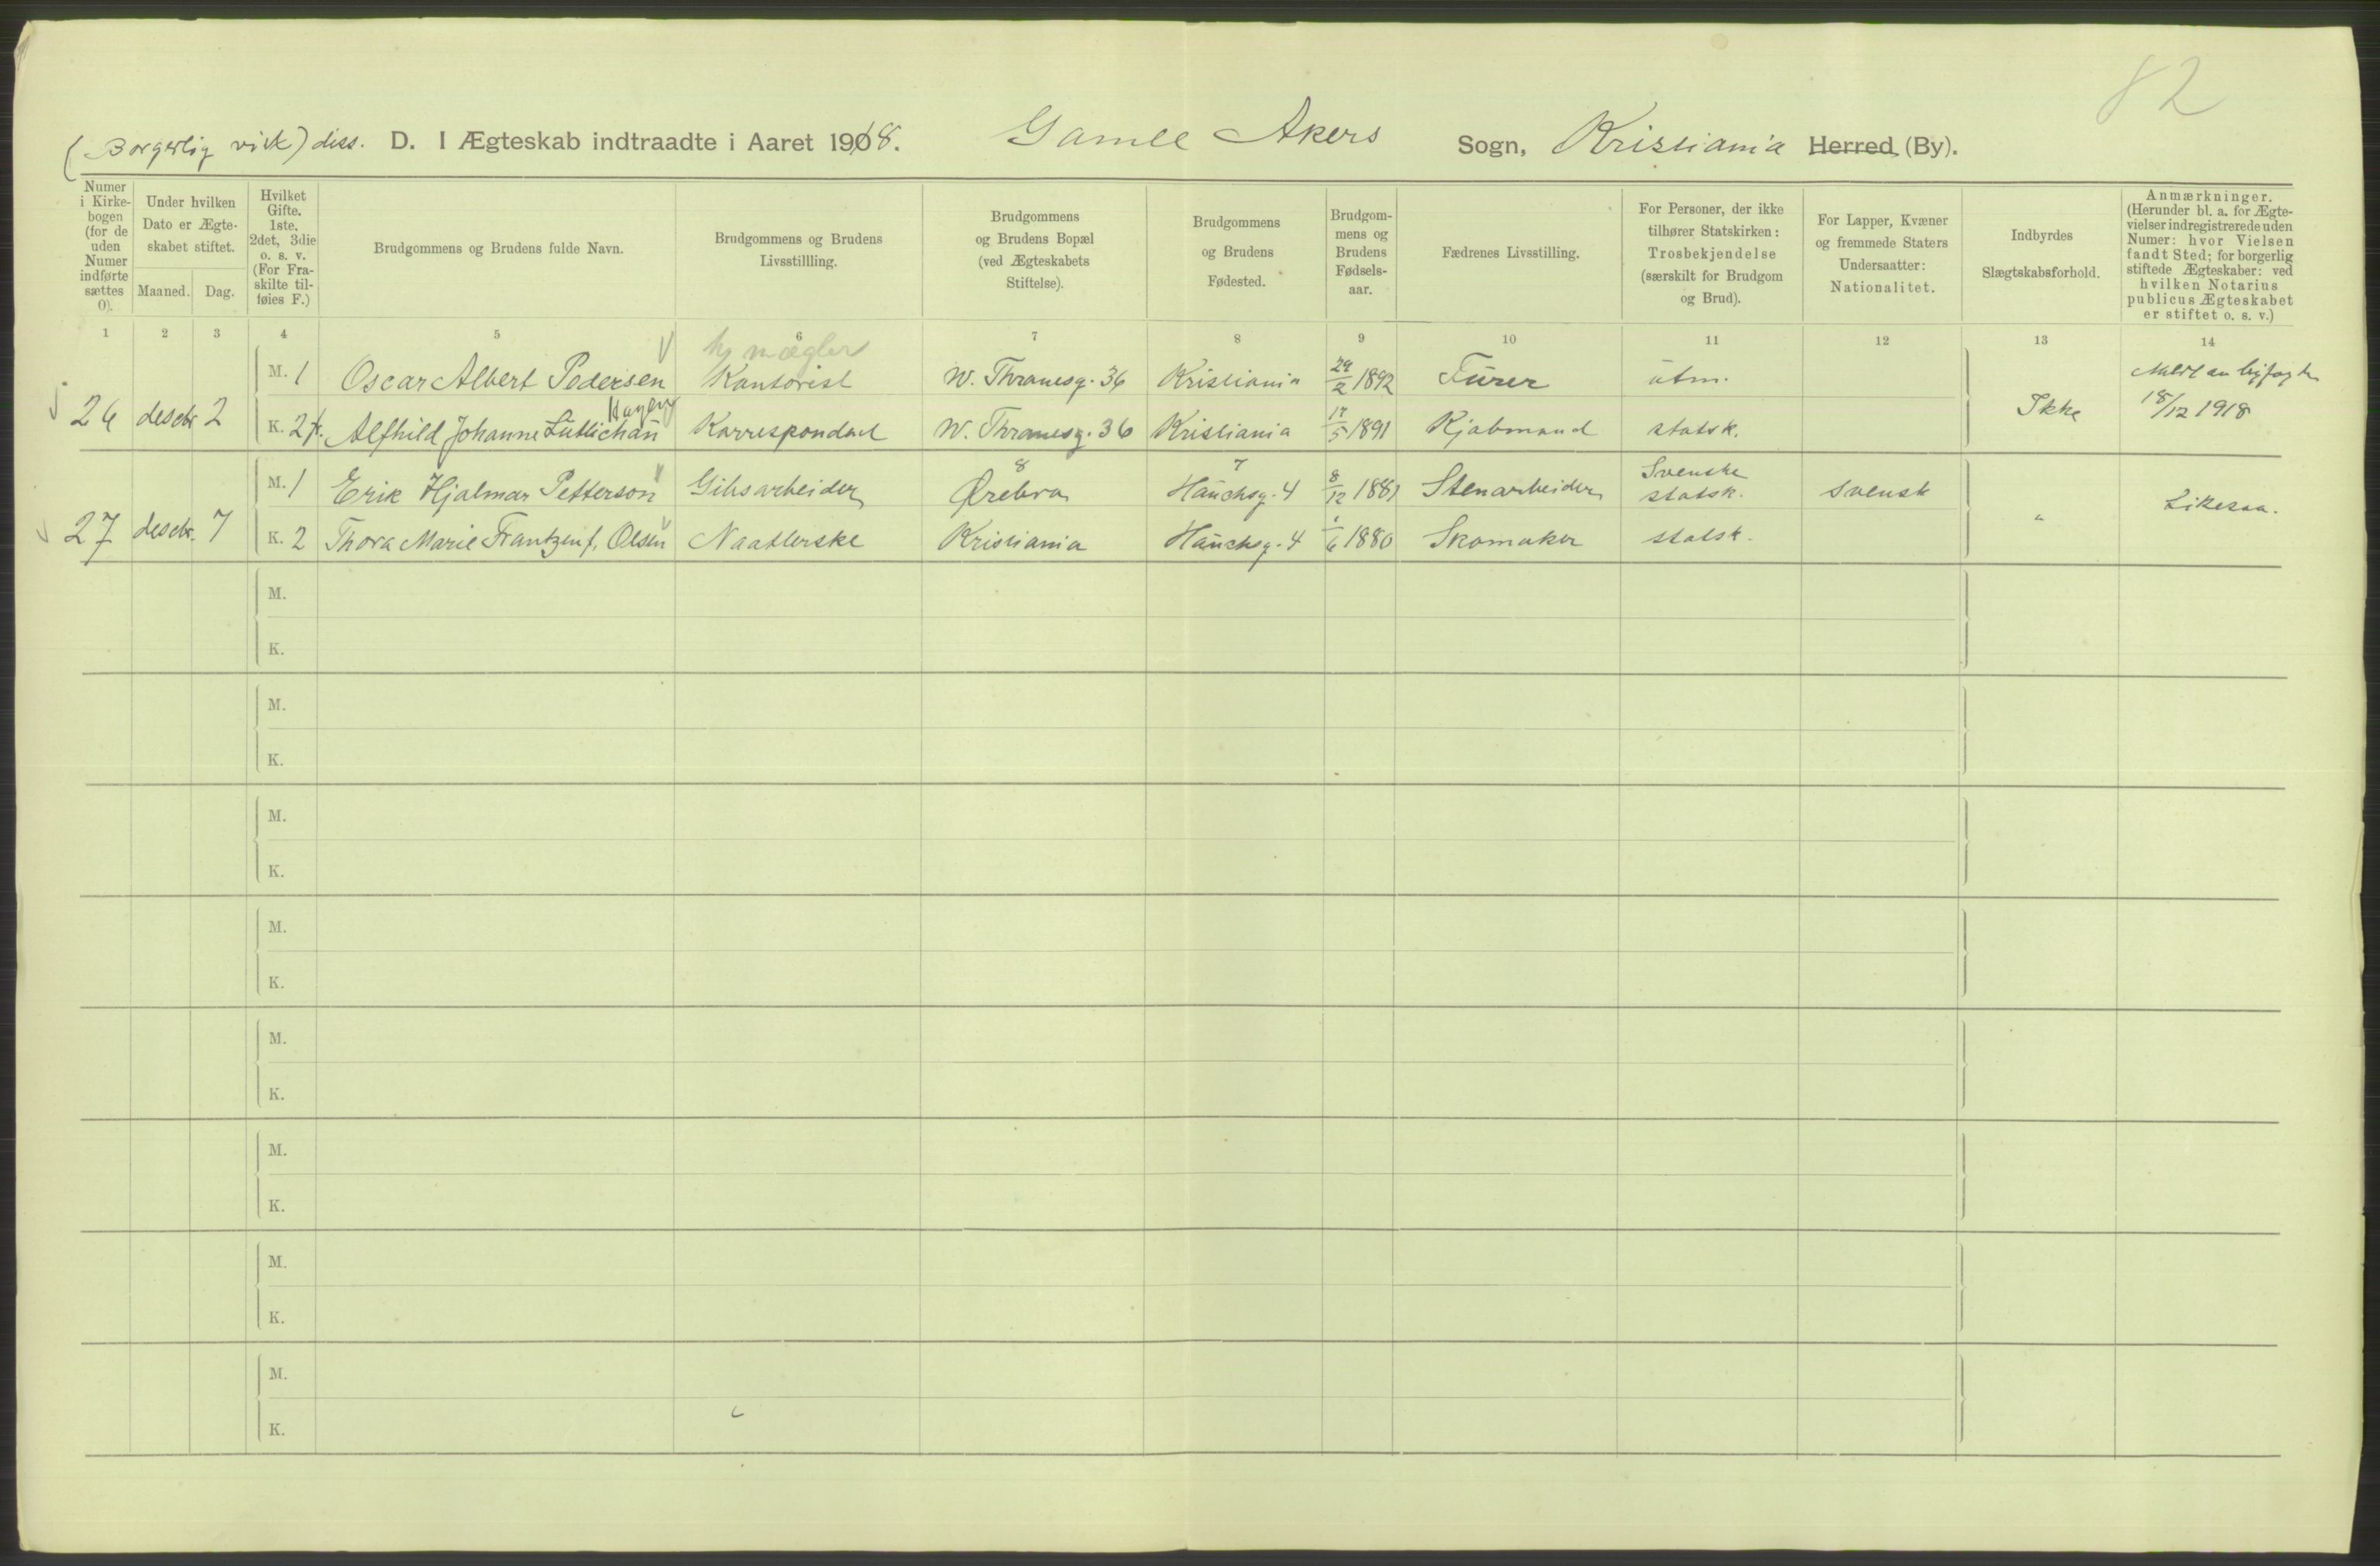 82
(Borgerlig viet) diss. D. I Ægteskab indtraadte i Aaret 1918. Gamle Akers Sogn, Kristiania Herred (By).
Numer i Kirkebogen (for de uden Numer indførte sættes 0).
Under hvilken Dato er Ægteskabet stiftet.
Maaned. Dag.
Hvilket Gifte. 1ste, 2det, 3die o. s. v. (For Fraskilte tilføies F.)
Brudgommens og Brudens fulde Navn.
Brudgommens og Brudens Livsstillling.
Brudgommens og Brudens Bopæl (ved Ægteskabets Stiftelse).
Brudgommens og Brudens Fødested.
Brudgommens og Brudens Fødselsaar.
Fædrenes Livsstilling.
For Personer, der ikke tilhører Statskirken: Trosbekjendelse (særskilt for Brudgom og Brud).
For Lapper, Kvæner og fremmede Staters Undersaatter: Nationalitet.
Indbyrdes Slægtskabsforhold.
Anmærkninger. (Herunder bl. a. for Ægtevielser indregistrerede uden Numer: hvor Vielsen fandt Sted; for borgerlig stiftede Ægteskaber: ved hvilken Notarius publicus Ægteskabet er stiftet o. s. v.)
1 2 3 4 5 6 7 8 9 10 11 12 13 14
mægler
M. 1 Oscar Albert Pedersen Kontorist W. Thranesg. 36 Kristiania 29/2 1892 Turer utm.
Hagen
26 desebr 2 K. 2 f. Alfhild Johanne Lüttichau Korrespondent W. Thranesg. 36 Kristiania 17/5 1891 Kjøbmand statsk. Ikke 18/12 1918
8 7 Svenske
M. 1 Erik Hjalmar Petterson Gibsarbeider Ørebro Hauchsg. 4 8/12 1881 Stenarbeider statsk. svensk
27 desebr. 7 K. 2 Thora Marie Frantzen f. Olsen Naatlerske Kristiania Hauchsg. 4 /6 1880 Skomaker statsk. " Likesaa.
M.
K.
M.
K.
M.
K.
M.
K.
M.
K.
M.
K.
M.
K.
M.
K.